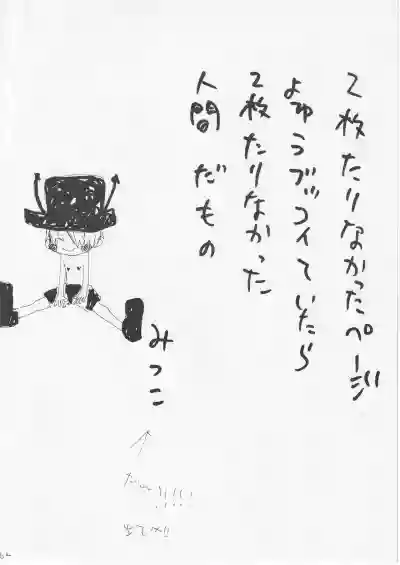 2枚たりなかったページ
よゆうブッコイていたら
2枚たりなかった
人間だもの
みつこ